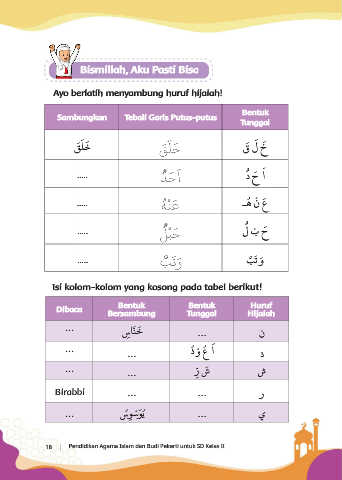 Bismillah, Aku Pasti Bisa
Ayo berlatih menyambung huruf hijaiah!
Sambungkan Tebali Garis Putus-putus Bentuk Tunggal
خَلَقَ خَلَقَ خَ لَ قَ
..... اَحَدٌ اَ حَ دٌ
..... عَنْهُ عَ نْ هُـ
..... حَبْلٌ حَ بْ لٌ
..... وَتَبَّ وَ تَبَّ
Isi kolom-kolom yang kosong pada tabel berikut!
Dibaca Bentuk Bersambung Bentuk Tunggal Huruf Hijaiah
... خَنَّاسِ ... ن
... ... اَ عُ وْ ذُ د
... ... شَ رِّ ش
Birabbi ... ... ر
... يُوَسْوِسُ ... ي
16 | Pendidikan Agama Islam dan Budi Pekerti untuk SD Kelas II